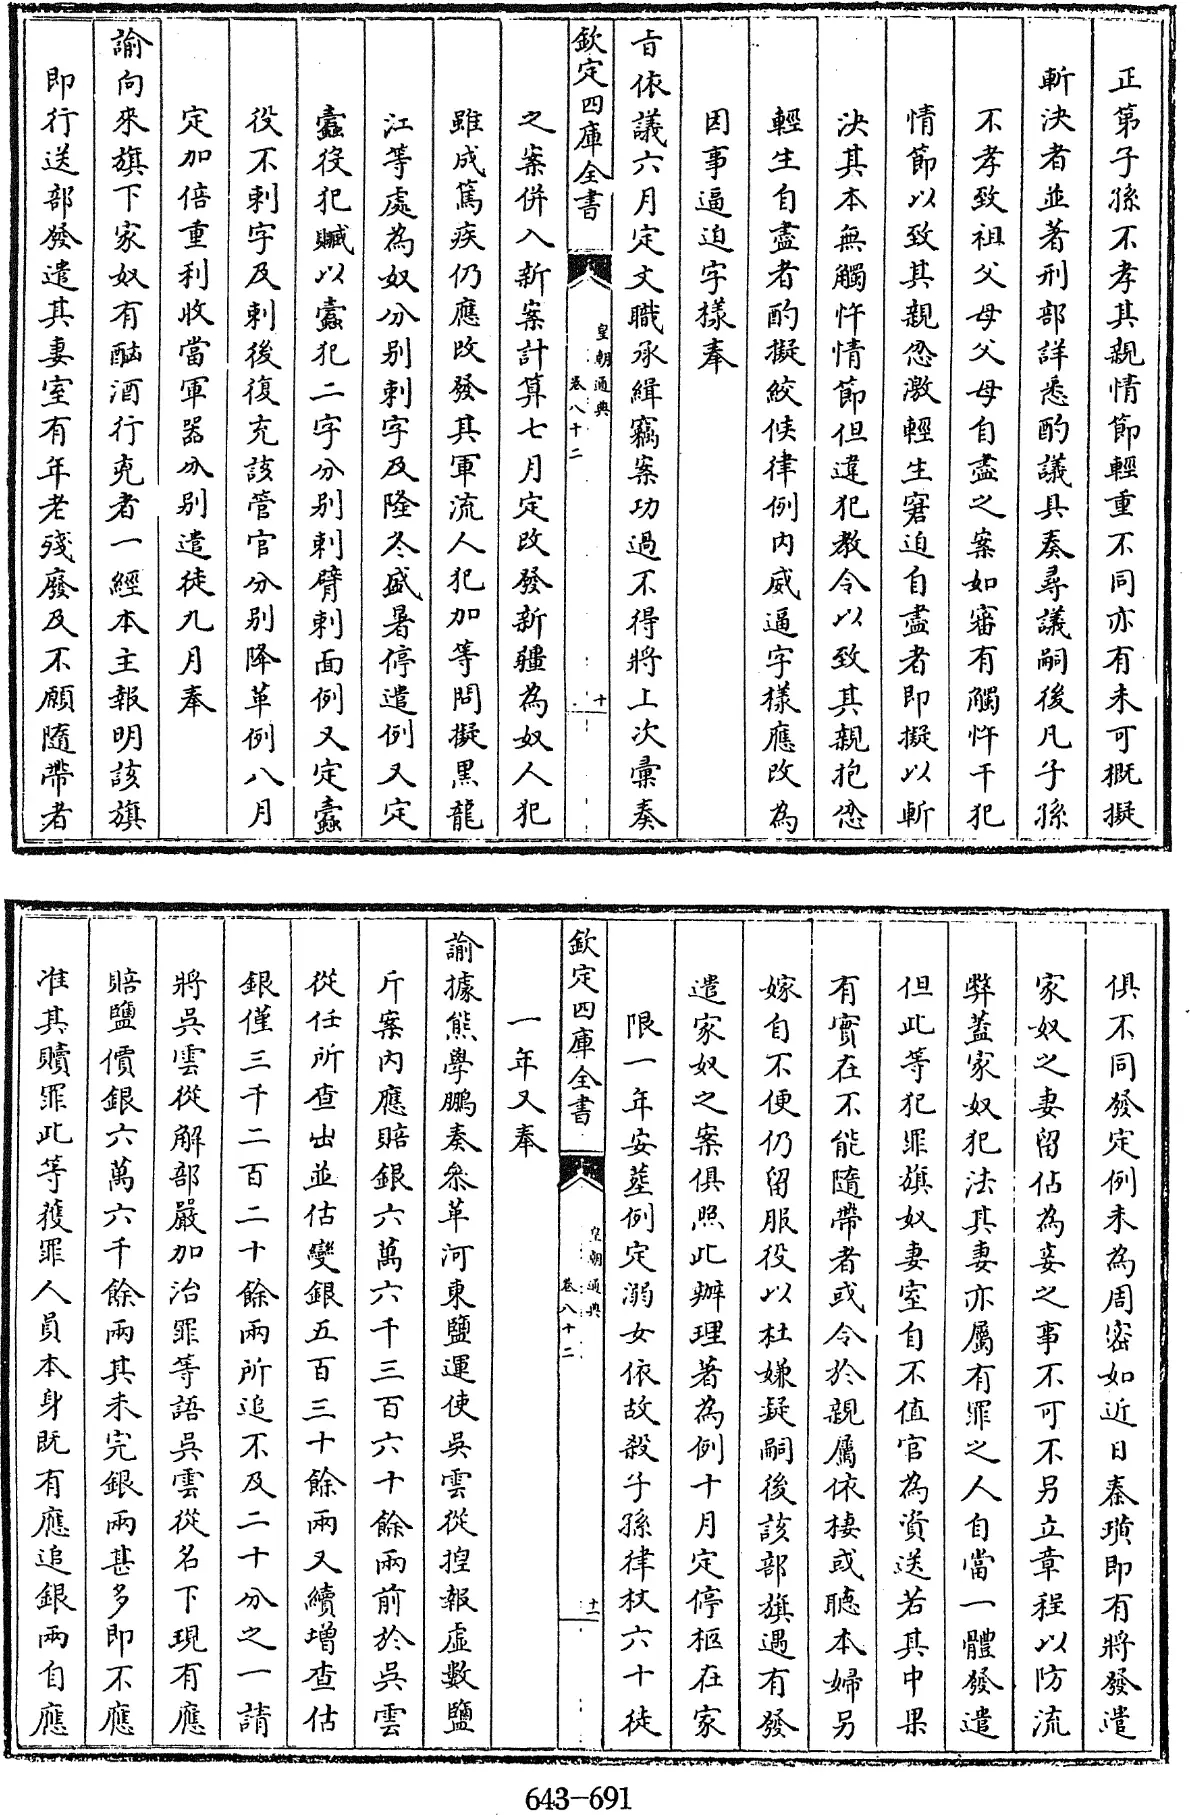 正第子孫不孝其親情節輕重不同亦有未可概擬
斬決者並著刑部詳悉酌議具奏尋議嗣後凡子孫
不孝致祖父母父母自盡之案如審有觸忤干犯
情節以致其親忿激輕生窘迫自盡者即擬以斬
決其本無觸忤情節但違犯教令以致其親抱忿
輕生自盡者酌擬絞候律例內威逼字樣應改為
因事逼迫字樣奉
旨依議六月定文職承緝竊案功過不得將上次彚奏
欽定四庫全書
皇朝通典
卷八十二
十
之案併入新案計算七月定改發新疆為奴人犯
雖成篤疾仍應改發其軍流人犯加等問擬黑龍
江等處為奴分别刺字及隆冬盛暑停遣例又定
蠹役犯贓以蠹犯二字分别刺臂刺面例又定蠹
役不刺字及刺後復充該管官分别降革例八月
定加倍重利收當軍器分别遣徒九月奉
諭向來旗下家奴有酗酒行兇者一經本主報明該旗
即行送部發遣其妻室有年老殘廢及不願隨帶者
俱不同發定例未為周密如近日秦璜即有將發遣
家奴之妻留佔為妾之事不可不另立章程以防流
弊葢家奴犯法其妻亦屬有罪之人自當一體發遣
但此等犯罪旗奴妻室自不值官為資送若其中果
有實在不能隨帶者或令於親屬依棲或聽本婦另
嫁自不便仍留服役以杜嫌疑嗣後該部旗遇有發
遣家奴之案俱照此辦理著為例十月定停柩在家
限一年安葬例定溺女依故殺子孫律杖六十徒
欽定四庫全書
皇朝通典
卷八十二
十一
一年又奉
諭據熊學鵬奏叅革河東鹽運使吳雲從揑報虛數鹽
斤案內應賠銀六萬六千三百六十餘兩前於吳雲
從任所查出並估變銀五百三十餘兩又續增查估
銀僅三千二百二十餘兩所追不及二十分之一請
將吳雲從解部嚴加治罪等語吳雲從名下現有應
賠鹽價銀六萬六千餘兩其未完銀兩甚多即不應
准其贖罪此等獲罪人員本身既有應追銀兩自應
643-691